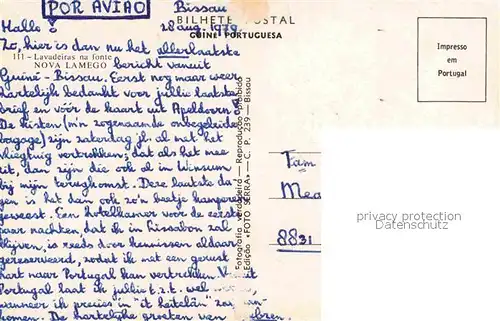 POR AVIAO
Bissau
BILHETE POSTAL
Hallo!
28 aug. 1979
GUINÉ PORTUGUESA
Zo, hier is dan nu het allerlaatste
111 - Lavadeiras na fonte
bericht vanuit
NOVA LAMEGO
Guiné-Bissau. Eerst nog maar weer
hartelijk bedankt voor jullie laatste
brief en vóór de kaart uit Apeldoorn.
De kisten (m'n zogenaamde onbegeleide
bagage) zijn zaterdag jl. al met het
vliegtuig vertrokken; dat als het mee
zit, dan zijn die ook al in Winsum
bij mijn terugkomst. Deze laatste da
gen is het dan ook zo'n beetje kamperen
geweest. Een hotelkamer voor de eerste
paar nachten, dat ik in Lissabon zal
blijven, is reeds door kennissen aldaar
gereserveerd, zodat ik met een gerust
hart naar Portugal kan vertrekken. Vanuit
Portugal laat ik jullie t.z.t. wel
wanneer ik precies in "it heitelân" zal
komen. De hartelijke groeten van
Fotografia verdadeira - Reprodução proibida
Edição «FOTO SERRA» - C. P. 239 - Bissau
Impresso
em
Portugal
Fam
Mea
8831
privacy protection
Datenschutz